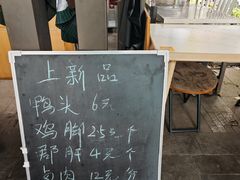 上新品
鸭头 6元
鸡脚 2.5元 个
郡肝 4元 个
卤肉 12元 份